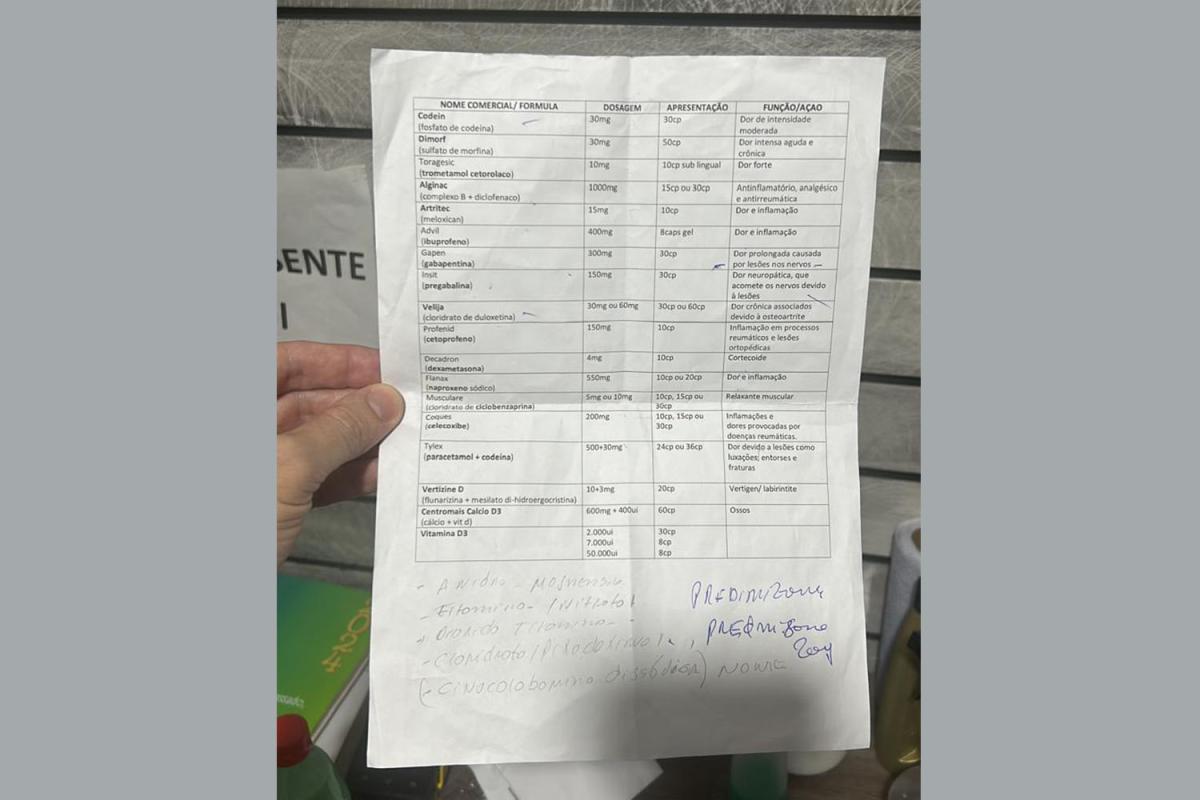 NOME COMERCIAL/ FORMULA DOSAGEM APRESENTAÇÃO FUNÇÃO/AÇAO
Codein 30mg 30cp Dor de intensidade
(fosfato de codeína) moderada
Dimorf 30mg 50cp Dor intensa aguda e
(sulfato de morfina) crônica
Toragesic 10mg 10cp sub lingual Dor forte
(trometamol cetorolaco)
Alginac 1000mg 15cp ou 30cp Antinflamatório, analgésico
(complexo B + diclofenaco) e antirreumática
Artritec 15mg 10cp Dor e inflamação
(meloxican)
Advil 400mg 8caps gel Dor e inflamação
(ibuprofeno)
Gapen 300mg 30cp Dor prolongada causada
(gabapentina) por lesões nos nervos
Insit 150mg 30cp Dor neuropática, que
(pregabalina) acomete os nervos devido
à lesões
Velija 30mg ou 60mg 30cp ou 60cp Dor crônica associados
(cloridrato de duloxetina) devido à osteoartrite
Profenid 150mg 10cp Inflamação em processos
(cetoprofeno) reumáticos e lesões
ortopédicas
Decadron 4mg 10cp Cortecoide
(dexametasona)
Flanax 550mg 10cp ou 20cp Dor e inflamação
(naproxeno sódico)
Musculare 5mg ou 10mg 10cp, 15cp ou Relaxante muscular
(cloridrato de ciclobenzaprina) 30cp
Coques 200mg 10cp, 15cp ou Inflamações e
(celecoxibe) 30cp dores provocadas por
doenças reumáticas.
Tylex 500+30mg 24cp ou 36cp Dor devido a lesões como
(paracetamol + codeína) luxações, entorses e
fraturas
Vertizine D 10+3mg 20cp Vertigen/ labirintite
(flunarizina + mesilato di-hidroergocristina)
Centromais Calcio D3 600mg + 400ui 60cp Ossos
(cálcio + vit d)
Vitamina D3 2.000ui 30cp
7.000ui 8cp
50.000ui 8cp
PREDIMIZONA
NOME